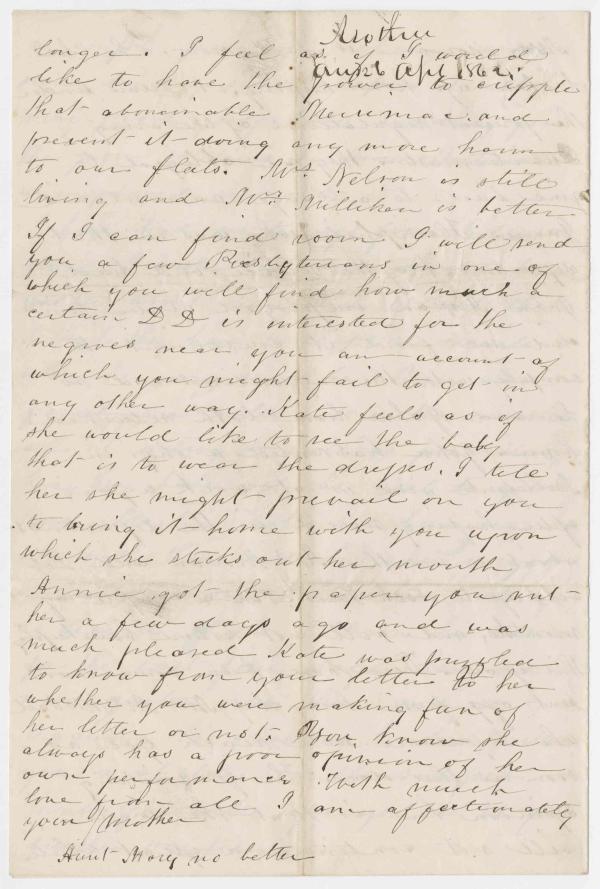 Mother
26 Apl 1862.
longer. I feel as if I would
like to have the power to cripple
that abominable Merrimac and
prevent it doing any more harm
to our flats. Mrs Nelson is still
living and Mrs Milliken is better
If I can find room I will send
you a few Presbyterians in one of
which you will find how much a
certain D D is interested for the
negroes near you an account of
which you might fail to get in
any other way. Kate feels as if
she would like to see the baby
that is to wear the dresses. I tell
her she might prevail on you
to bring it home with you upon
which she sticks out her mouth
Annie got the paper you sent
her a few days ago and was
much pleased Kate was puzzled
to know from your letter to her
whether you were making fun of
her letter or not. You know she
always has a poor opinion of her
own performances. With much
love from all I am affectionately
your Mother
Aunt Mary no better